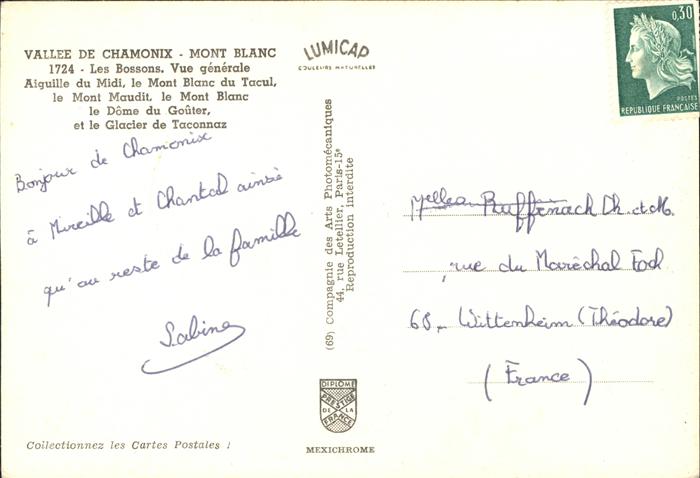 VALLEE DE CHAMONIX - MONT BLANC
1724 - Les Bossons. Vue générale
Aiguille du Midi, le Mont Blanc du Tacul,
le Mont Maudit, le Mont Blanc
le Dôme du Goûter,
et le Glacier de Taconnaz
Bonjour de Chamonix
à Mireille et Chantal ainsi
qu'au reste de la famille
Sabine
Collectionnez les Cartes Postales !
LUMICAP
COULEURS NATURELLES
(69) Compagnie des Arts Photomécaniques
44, rue Letellier, Paris-15e
Reproduction interdite
DIPLOME
PRESTIGE
DE LA
FRANCE
MEXICHROME
0,30
POSTES
REPUBLIQUE FRANÇAISE
Ruffenach Ch. et M.
rue du Maréchal Foch
68 - Wittenheim (Théodore)
(France)